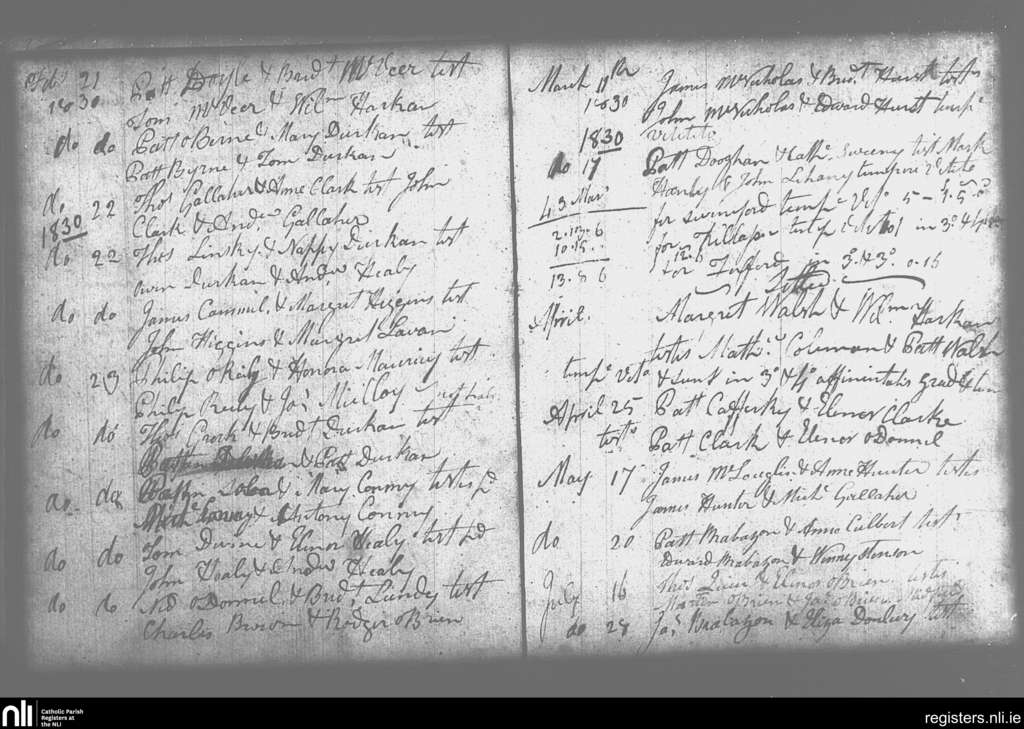 Feb 21 Patt Doyle & Bridt McVeer test
1830 Tom McVeer & Wilm Harkan
do do Patt OBirne & Mary Durkan test
Patt Byrne & Tom Durkan
do 22 Thos Gallaher & Anne Clark test John
1830 Clark & Andw Gallaher
do 22 Thos Linsky & Nappy Durkan test
Owen Durkan & Andw Healy
do do James Cammel & Margret Higgins test
John Higgins & Margret Lavan
do 23 Philip OReily & Honora test
Philip Reily & Jas
do do Thos Crock & Bridt Durkan test
& Patt Durkan
do do & Mary Conmy testes
Michl Conmy & Antony Conmy
do do Tom Devine & Elenor Healy test
John Healy & Andw Healy
do do Nd ODonnel & Bridt Lundy test
Charles Brown & Rodger OBrien
March 11th James McNicholas & Bridt Hurst testes
1830 John McNicholas & Edward Hurst
1830
do 17 Patt Dooghan & Cathe Sweeny test Mark
Henly & John Lehany tempore
4.3 Mar for Swinford 5 -
2.10.6 for Killasser in 3o 4
10.15
13.8 6 for in 3o & 3o 0.15
April. Margret Walsh & Wilm Harkan
testes Mathw Coleman & Patt Walsh
in 3o & 4o affinitatis gradu
April 25 Patt Cafferky & Elenor Clarke
testes Patt Clark & Elenor oDonnel
May 17 James McLouglin & Anne Hunter testes
James Hunter & Michl Gallaher
do 20 Patt Brabazon & Anne Culbert test
Edward Brabazon & Winny
July 16 Thos & Elenor OBrien testes
Martin OBrien &
do 28 Jas Brabazon & Eliza test
nli
Catholic Parish
Registers at
the NLI
registers.nli.ie